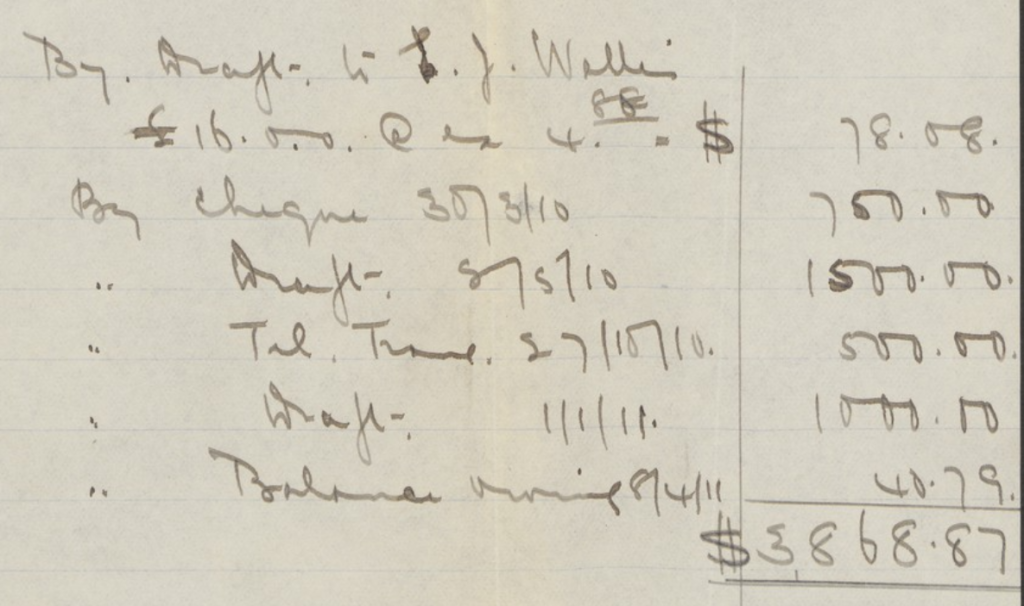 By. Draft. to J. Wallis
£16.0.0. @ ex 4.88 = $ 78.08.
By cheque 30/3/10 750.00
" Draft. 2/5/10 1500.00.
" Tel. Trans. 27/10/10. 500.00.
" Draft. 1/1/11. 1000.00
" Balance owing 8/4/11 40.79.
$3,868.87